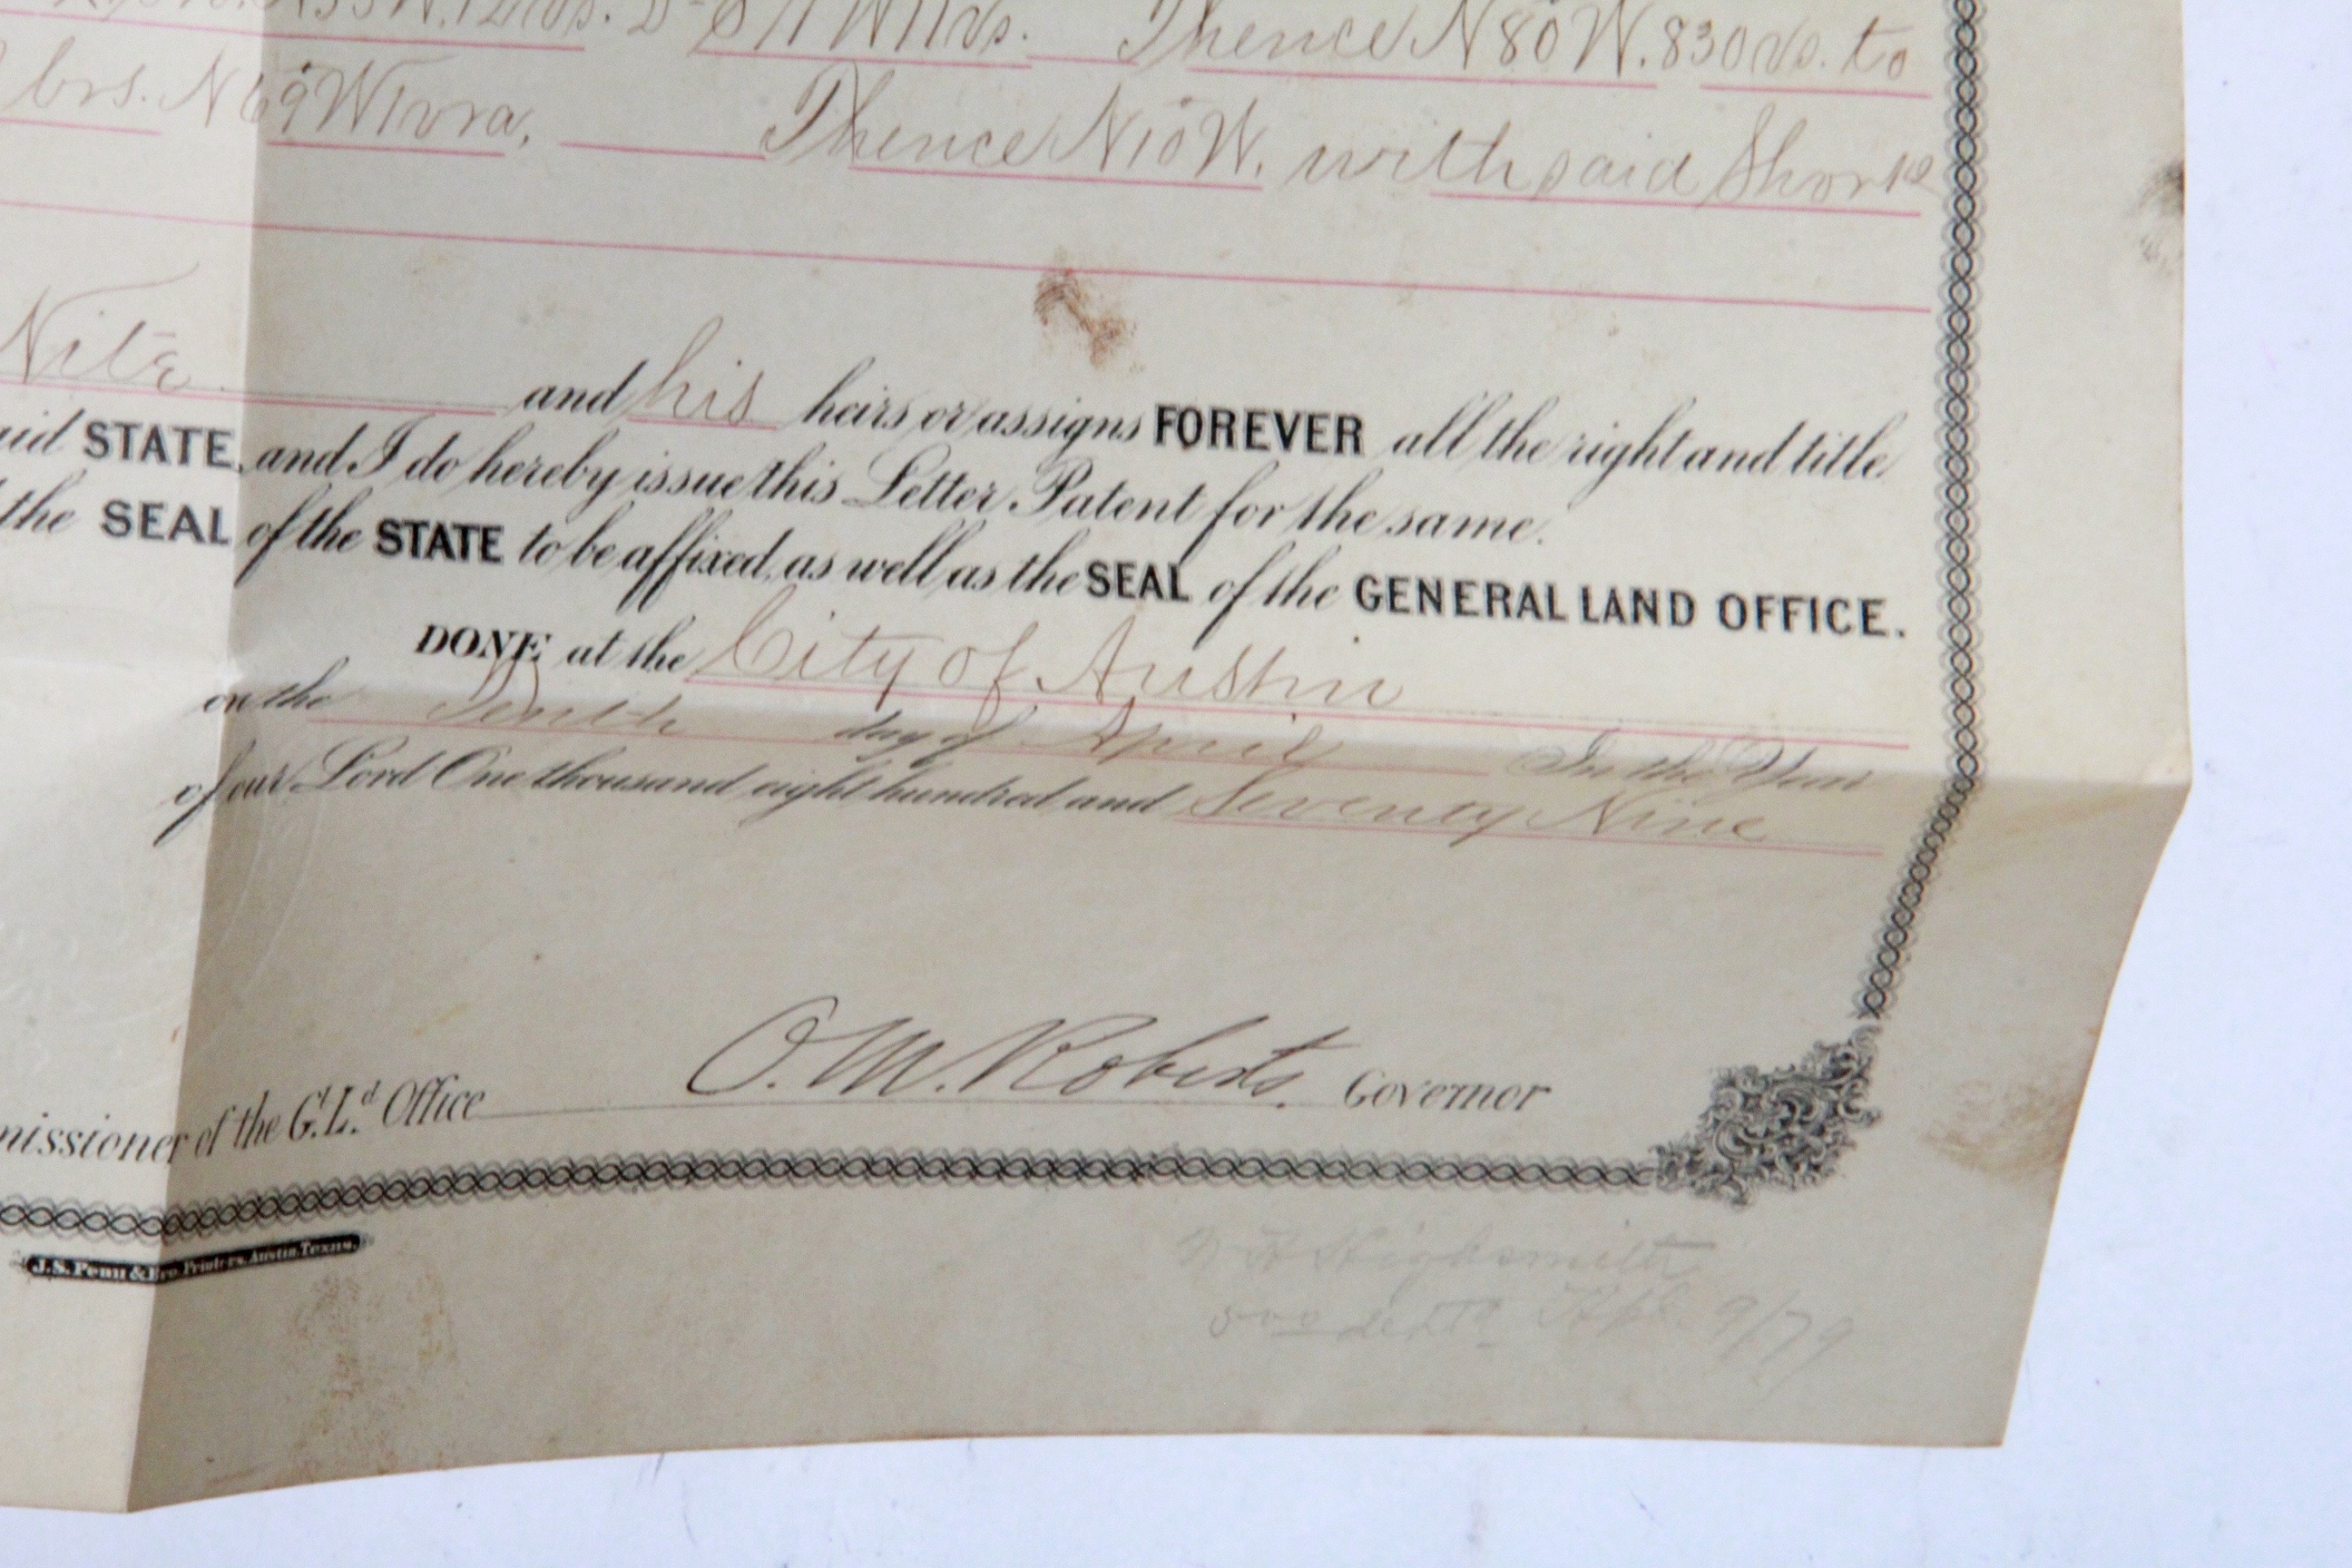 Thence N 80 W. 830 vs. to
brs. N 69 W 1 vra, Thence N 10 W. with said Shor
and his heirs or assigns FOREVER all the right and title
STATE, and I do hereby issue this Letter Patent for the same.
the SEAL of the STATE to be affixed, as well as the SEAL of the GENERAL LAND OFFICE.
DONE at the City of Austin
on the Tenth day of April In the Year
of our Lord One thousand eight hundred and Seventy Nine
missioner of the G'.L.d Office O. M. Roberts. Governor
J.S. Penn & Bro. Printers, Austin, Texas.
Highsmith
9/79